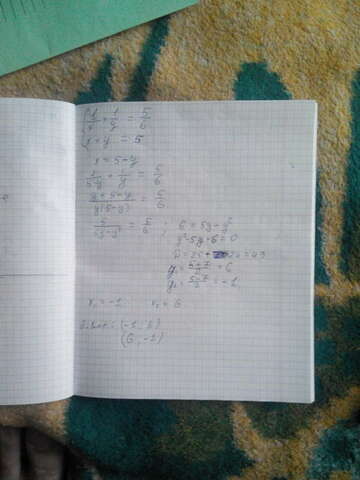 {1/x + 1/y = 5/6
{x + y = 5
x = 5 - y
1/5-y + 1/y = 5/6
y + 5 - y / y(5-y) = 5/6
5/5y-y² = 5/6 ; 6 = 5y - y²
y² - 5y - 6 = 0
D = 25 + 24 = 49
y₁ = 5+7/2 = 6
y₂ = 5-7/2 = -1
x₁ = -1 x₂ = 6
Ответ: (-1; 6)
(6; -1)